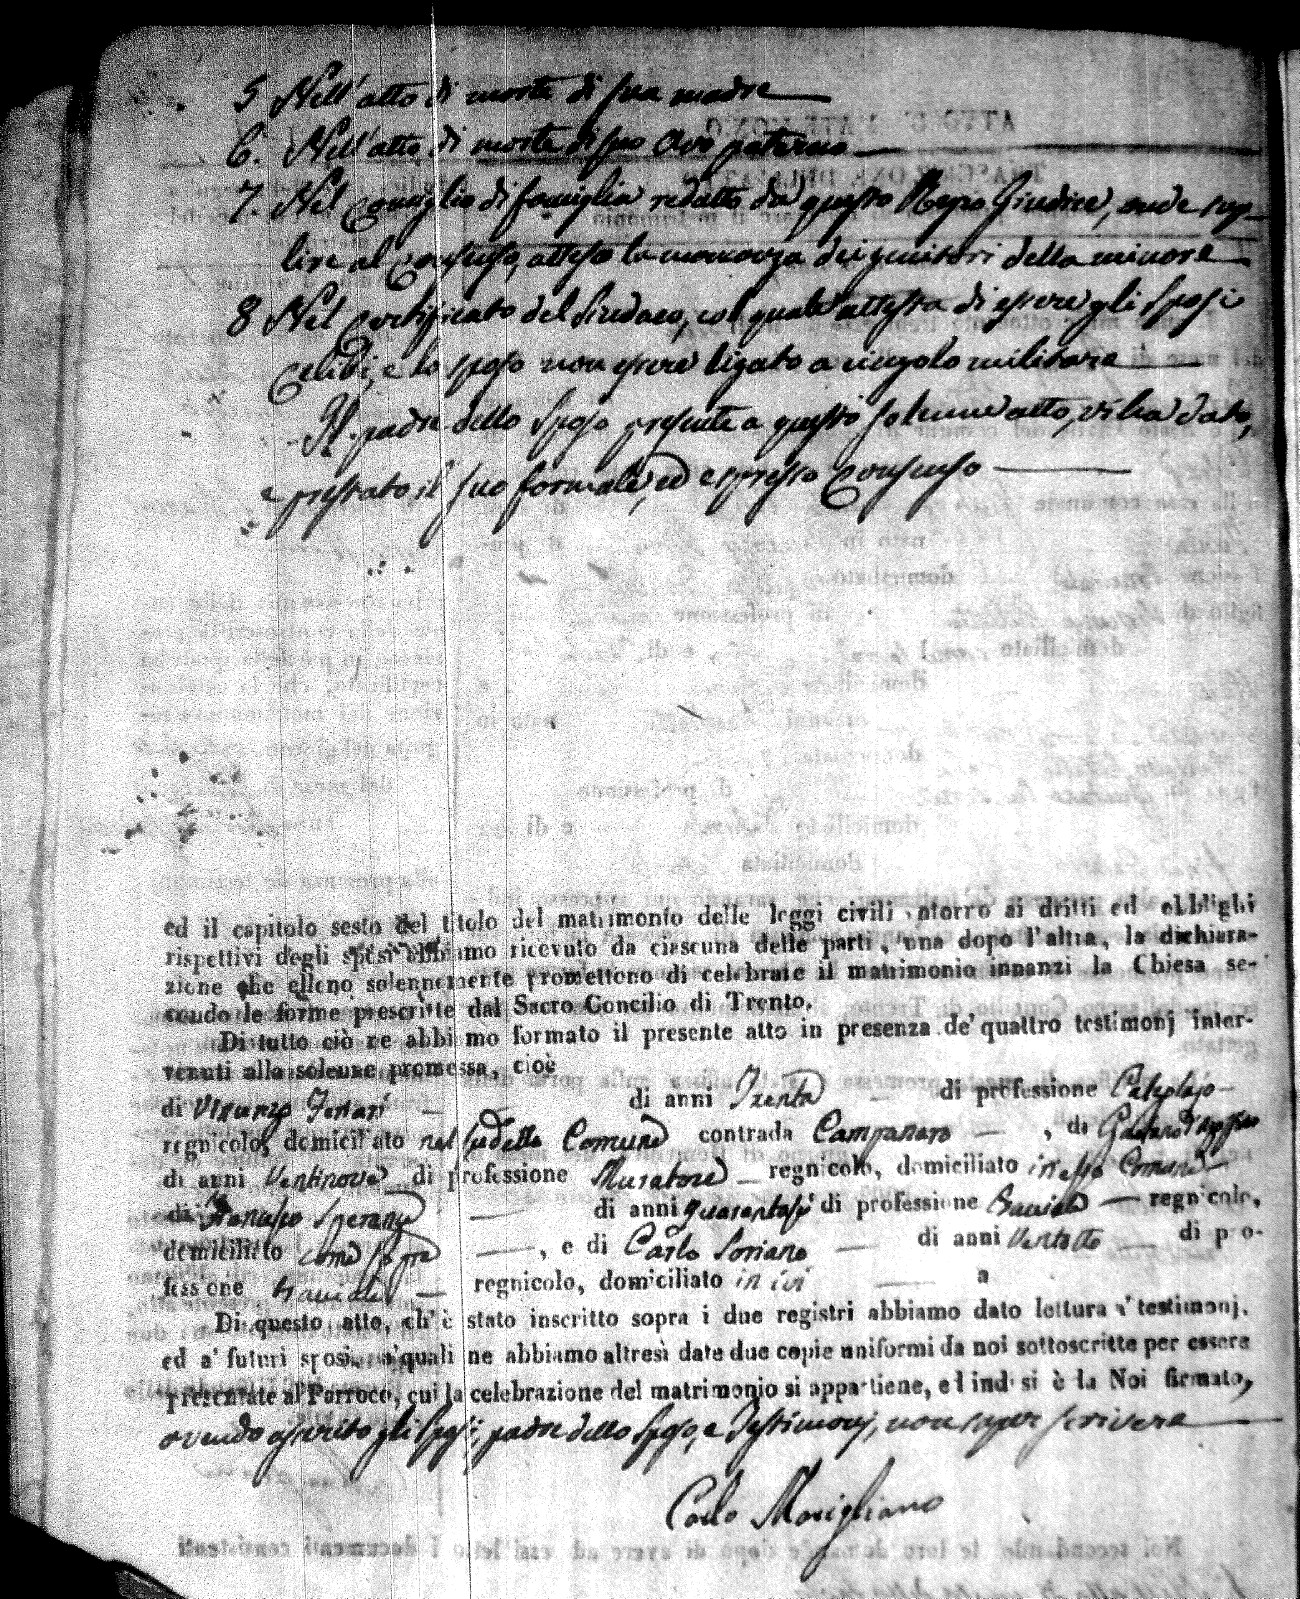 5 Nell'atto di morte di sua madre
6. Nell'atto di morte di suo Avo paterno
7. Nel Consiglio di famiglia redatto da questo Regio Giudice, onde sup-
lire al Consenso, atteso la mancanza dei genitori della minore
8 Nel Certificato del Sindaco, col quale attesta di essere gli Sposi
Celibi, e lo sposo non essere ligato a vincolo militare
Il padre dello Sposo presente a questo solenne atto, vi ha dato,
e prestato il suo formale, ed espresso Consenso
ed il capitolo sesto del titolo del matrimonio delle leggi civili intorno ai dritti ed obblighi
rispettivi degli sposi abbiamo ricevuto da ciascuna delle parti, una dopo l'altra, la dichiara-
zione che elleno solennemente promettono di celebrare il matrimonio innanzi la Chiesa se-
condo le forme prescritte dal Sacro Concilio di Trento.
Di tutto ciò ne abbiamo formato il presente atto in presenza de' quattro testimonj inter-
venuti alla solenne promessa, cioè
di Vincenzo Ferrari di anni Trenta di professione
regnicolo, domiciliato nel sudetto Comune contrada Campanaro, di Gaetano
di anni Ventinove di professione Muratore regnicolo, domiciliato in esso Comune
di Francesco Speranza di anni quarantasei di professione Bracciale regnicolo,
domiciliato come sopra, e di Carlo Soriano di anni Ventotto di pro-
fessione bracciale regnicolo, domiciliato in ivi
Di questo atto, ch'è stato inscritto sopra i due registri abbiamo dato lettura a' testimonj,
ed a' futuri sposi, a' quali ne abbiamo altresì date due copie uniformi da noi sottoscritte per essere
presentate al Parroco, cui la celebrazione del matrimonio si appartiene, e indi si è da Noi firmato,
avendo asserito gli Sposi, padre dello Sposo, e Testimonj, non saper scrivere
Carlo Marigliano